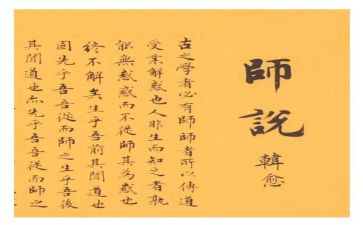 師說
韓愈
古之學者必有師師者所以傳道
受業解惑也人非生而知之者孰
能無惑惑而不從師其為惑也
終不解矣生乎吾前其聞道也
固先乎吾吾從而師之生乎吾後
其聞道也亦先乎吾吾從而師之